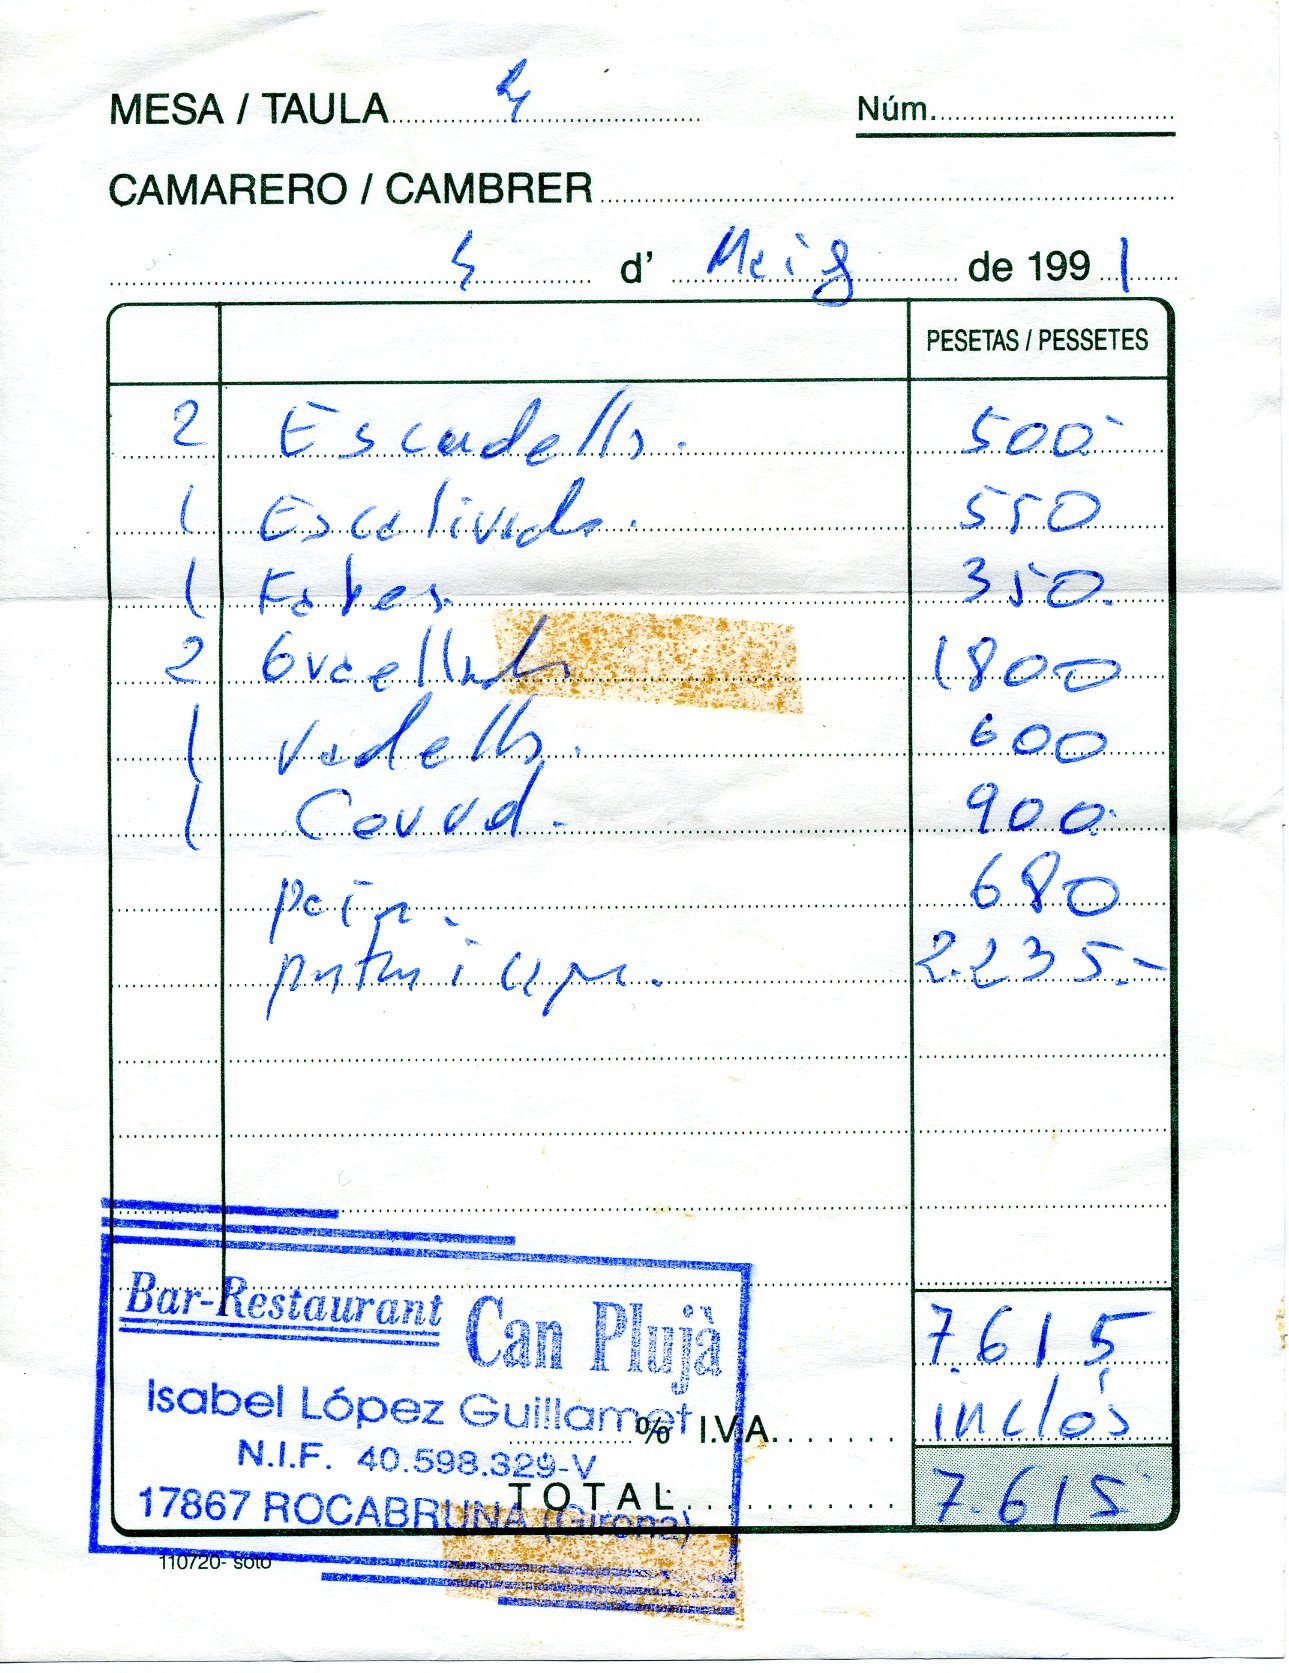 MESA / TAULA 4 Núm.
CAMARERO / CAMBRER
4 d' Maig de 1991
PESETAS / PESSETES
2 Escudella. 500
1 Escalivada. 550
1 Fabes. 350
2 Graellada 1800
1 Vadella. 600
1 Conud. 900
pa i 680
postres i 2.235.-
7.615
Bar-Restaurant Can Plujà
Isabel López Guillamet
% I.V.A. inclós
N.I.F. 40.598.329-V
TOTAL 7.615
17867 ROCABRUNA (Girona)
110720- soto